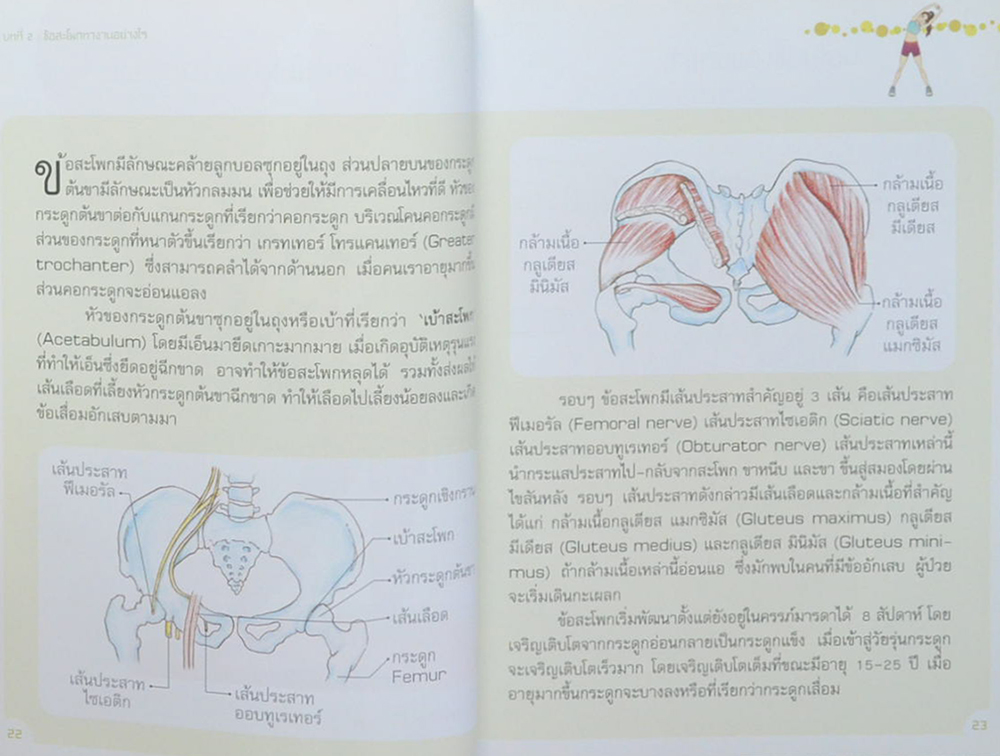 บทที่ 2 ข้อสะโพกทำงานอย่างไร
ข้อสะโพกมีลักษณะคล้ายลูกบอลซุกอยู่ในถุง ส่วนปลายบนของกระดูก
ต้นขามีลักษณะเป็นหัวกลมมน เพื่อช่วยให้มีการเคลื่อนไหวที่ดี หัวของ
กระดูกต้นขาต่อกับแกนกระดูกที่เรียกว่าคอกระดูก บริเวณโคนคอกระดูก
ส่วนของกระดูกที่หนาตัวขึ้นเรียกว่า เกรทเทอร์ โทรแคนเทอร์ (Greater
trochanter) ซึ่งสามารถคลำได้จากด้านนอก เมื่อคนเราอายุมากขึ้น
ส่วนคอกระดูกจะอ่อนแอลง
หัวของกระดูกต้นขาซุกอยู่ในถุงหรือเบ้าที่เรียกว่า 'เบ้าสะโพก'
(Acetabulum) โดยมีเอ็นมายึดเกาะมากมาย เมื่อเกิดอุบัติเหตุรุนแรง
ที่ทำให้เอ็นซึ่งยึดอยู่ฉีกขาด อาจทำให้ข้อสะโพกหลุดได้ รวมทั้งส่งผลให้
เส้นเลือดที่เลี้ยงหัวกระดูกต้นขาฉีกขาด ทำให้เลือดไปเลี้ยงน้อยลงและเกิด
ข้อเสื่อมอักเสบตามมา
เส้นประสาท
ฟีเมอรัล
กระดูกเชิงกราน
เบ้าสะโพก
หัวกระดูกต้นขา
เส้นเลือด
กระดูก
Femur
เส้นประสาท
ไซเอติก
เส้นประสาท
ออบทูเรเทอร์
22
กล้ามเนื้อ
กลูเตียส
มีเดียส
กล้ามเนื้อ
กลูเตียส
มินิมัส
กล้ามเนื้อ
กลูเตียส
แมกซิมัส
รอบๆ ข้อสะโพกมีเส้นประสาทสำคัญอยู่ 3 เส้น คือเส้นประสาท
ฟีเมอรัล (Femoral nerve) เส้นประสาทไซเอติก (Sciatic nerve)
เส้นประสาทออบทูเรเทอร์ (Obturator nerve) เส้นประสาทเหล่านี้
นำกระแสประสาทไป-กลับจากสะโพก ขาหนีบ และขา ขึ้นสู่สมองโดยผ่าน
ไขสันหลัง รอบๆ เส้นประสาทดังกล่าวมีเส้นเลือดและกล้ามเนื้อที่สำคัญ
ได้แก่ กล้ามเนื้อกลูเตียส แมกซิมัส (Gluteus maximus) กลูเตียส
มีเดียส (Gluteus medius) และกลูเตียส มินิมัส (Gluteus mini-
mus) ถ้ากล้ามเนื้อเหล่านี้อ่อนแอ ซึ่งมักพบในคนที่มีข้ออักเสบ ผู้ป่วย
จะเริ่มเดินกะเผลก
ข้อสะโพกเริ่มพัฒนาตั้งแต่ยังอยู่ในครรภ์มารดาได้ 8 สัปดาห์ โดย
เจริญเติบโตจากกระดูกอ่อนกลายเป็นกระดูกแข็ง เมื่อเข้าสู่วัยรุ่นกระดูก
จะเจริญเติบโตเร็วมาก โดยเจริญเติบโตเต็มที่ขณะมีอายุ 15-25 ปี เมื่อ
อายุมากขึ้นกระดูกจะบางลงหรือที่เรียกว่ากระดูกเสื่อม
23